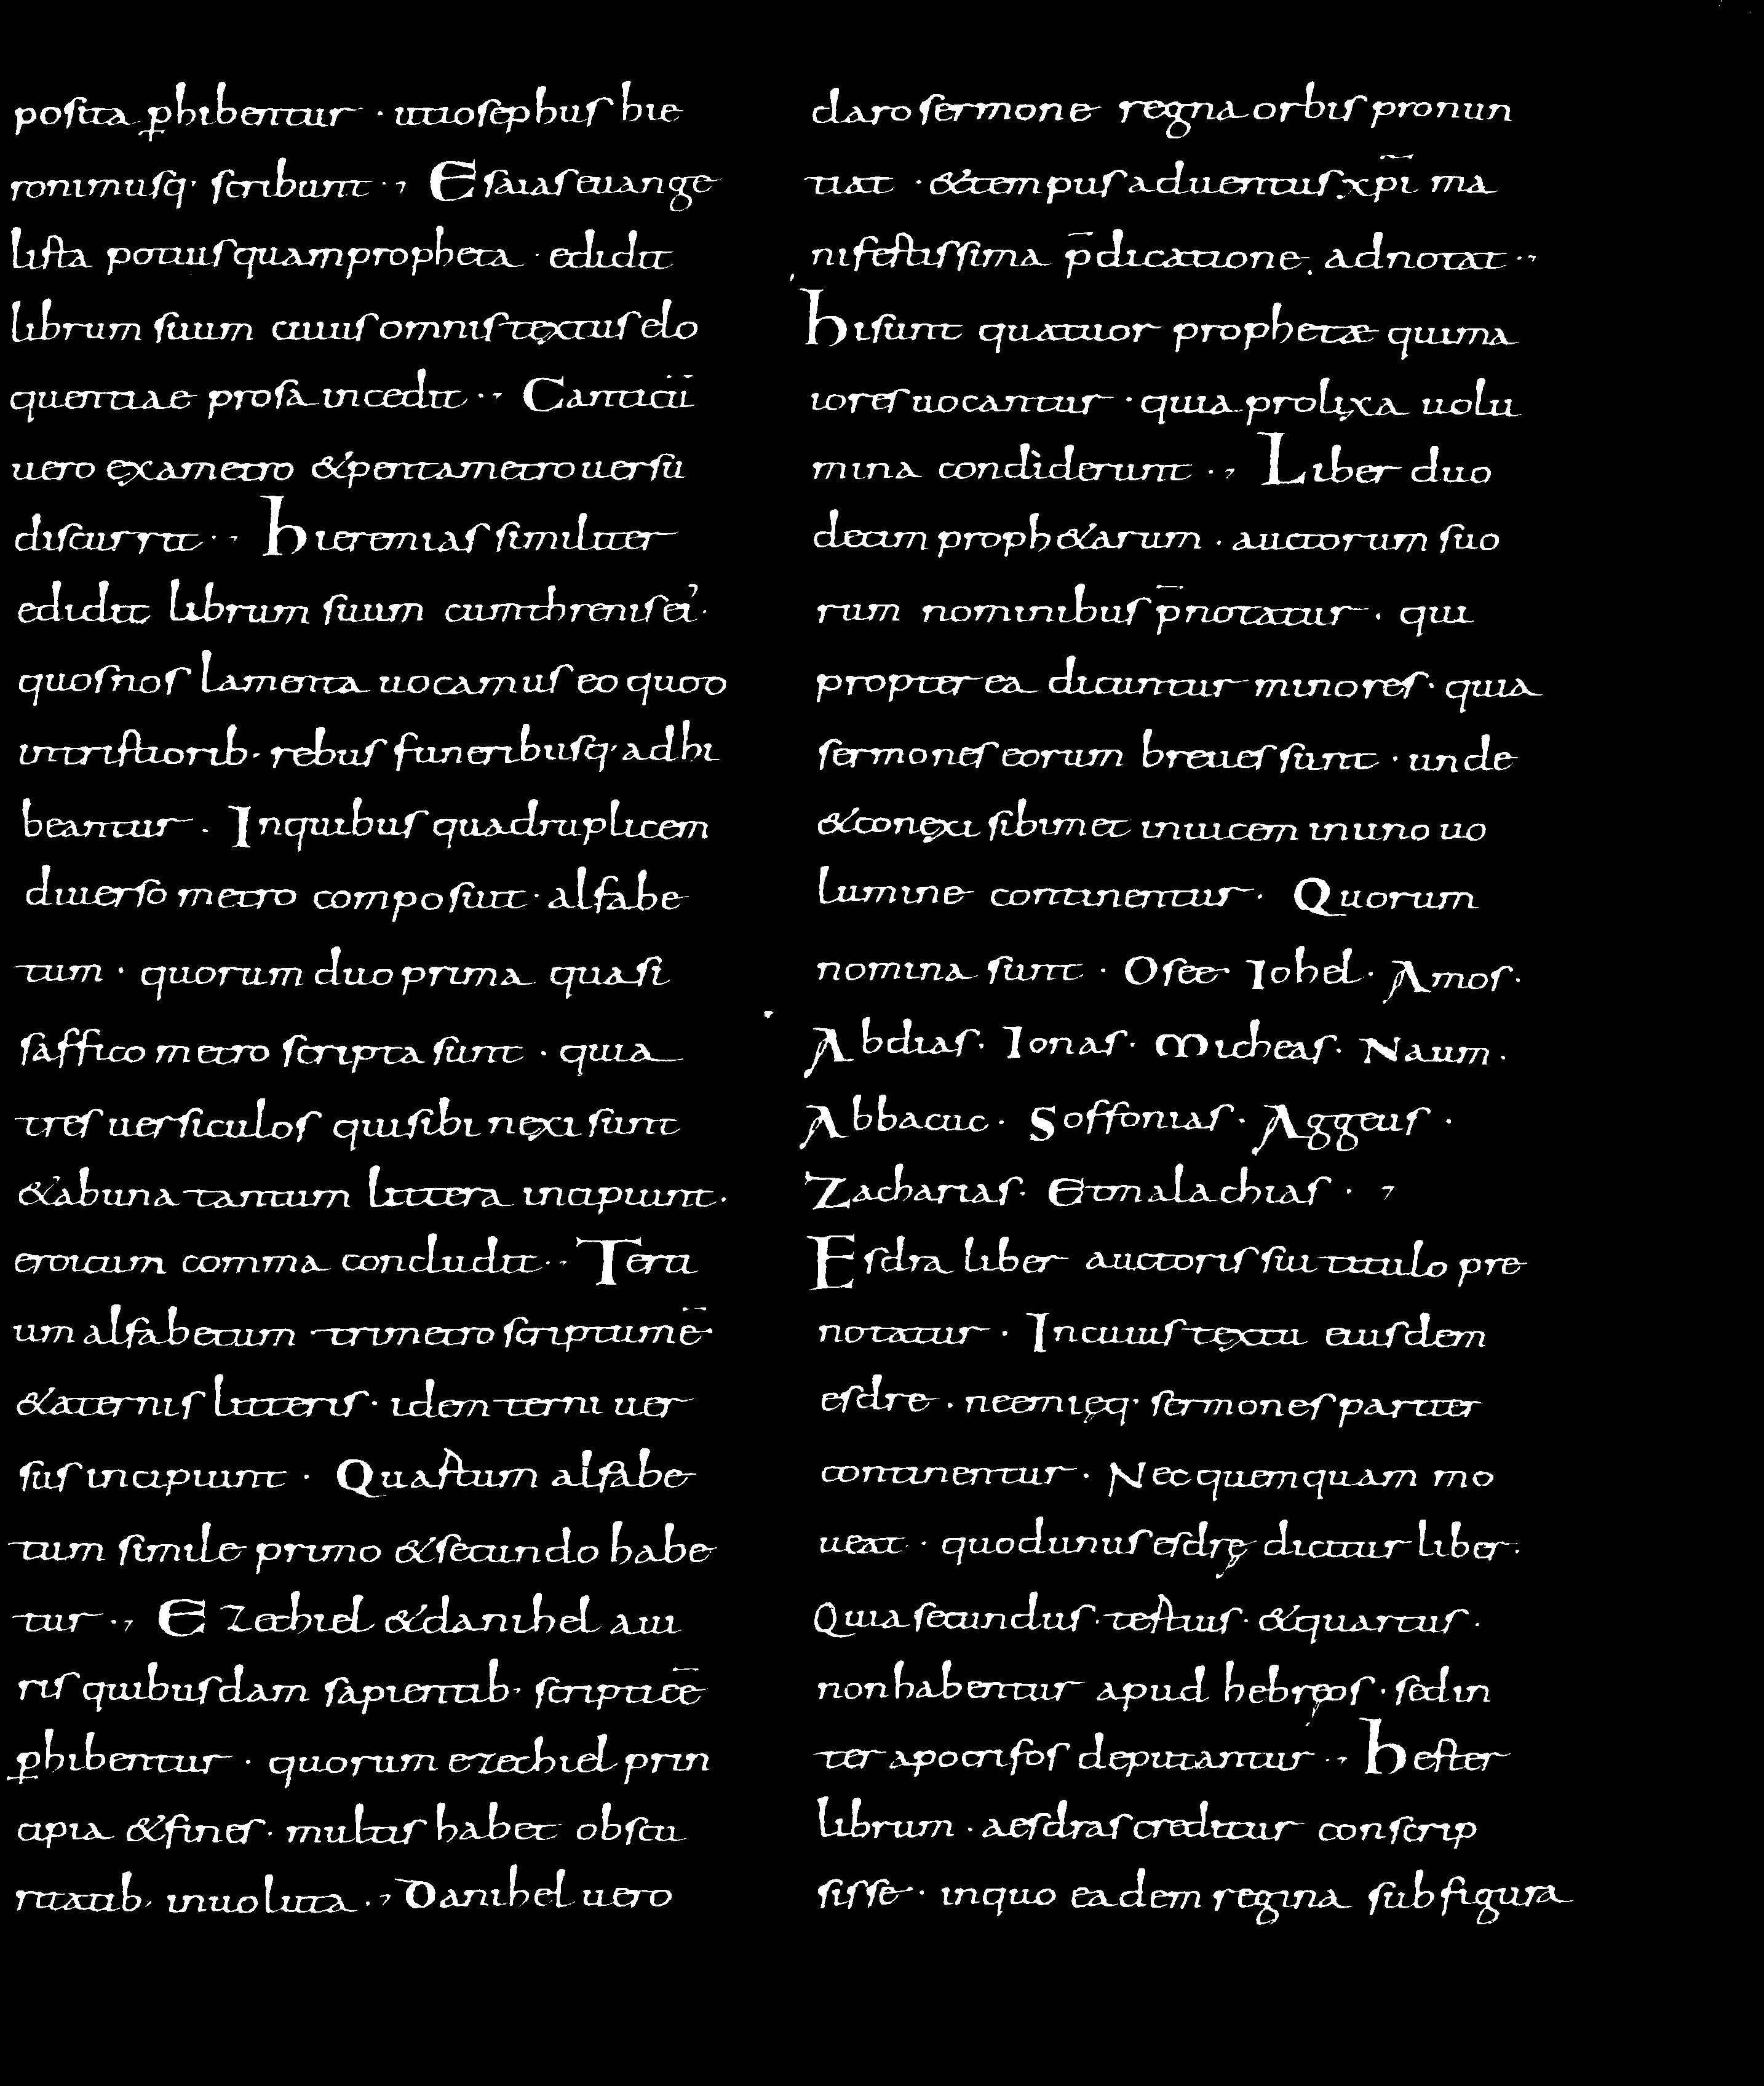 posita ꝑhibentur · utiosephus hie
ronimusq; scribunt ·, Esaias euange
lista potiusquampropheta · edidit
librum suum cuius omnis textus elo
quentiae prosa incedit ·, Canticū
uero exametro &pentametrouersu
discurrit ·, hieremias similiter
edidit librum suum cumthrenisei'·
quosnos lamenta uocamus eo quod
intristiorib· rebus funeribusq; adhi
beantur · Inquibus quadruplicem
diuerso metro composuit · alfabe
tum · quorum duo prima quasi
saffico metro scripta sunt · quia
tres uersiculos quisibi nexi sunt
&abuna tantum littera incipiunt ·
eroicum comma concludit ·, Terti
um alfabetum trimetro scriptumē·
&aternis litteris · idem terni uer
sus incipiunt · Quartum alfabe
tum simile primo &secundo habe
tur ·, Ezechiel &danihel a uii
ris quibusdam sapientib; scripticē
ꝑhibentur · quorum ezechiel prin
cipia &fines · multis habet obscu
ritatib; inuoluta ·, Danihel uero
claro sermone regna orbis pronun
tiat · &tempus aduentus xp̄i ma
nifestissima p̄dicatione, adnotat ·,
hisunt quattuor prophetæ quima
iores uocantur · quia prolixa uolu
mina condiderunt ·, Liber duo
decim proph&arum · auctorum suo
rum nominibus p̄notatur · qui
propter ea dicuntur minores · quia
sermones eorum breues sunt · unde
&conexi sibimet inuicem inuno uo
lumine continentur · Quorum
nomina sunt · Osee· Iohel · Amos ·
Abdias · Ionas · Micheas · Naum ·
Abbacuc · Soffonias · Aggeus ·
Zacharias · Etmalachias · ,
Esdra liber auctoris sui titulo pre
notatur · Incuius textu eiusdem
esdre · neemięq; sermones pariter
continentur · Nec quemquam mo
ueat · quodunus esdrę dicitur liber ·
Quia secundus · tertius · &quartus ·
nonhabentur apud hebręos · sed in
ter apocrifos deputantur ·, hester
librum · aesdras creditur conscrip
sisse · inquo eadem regina sub figura